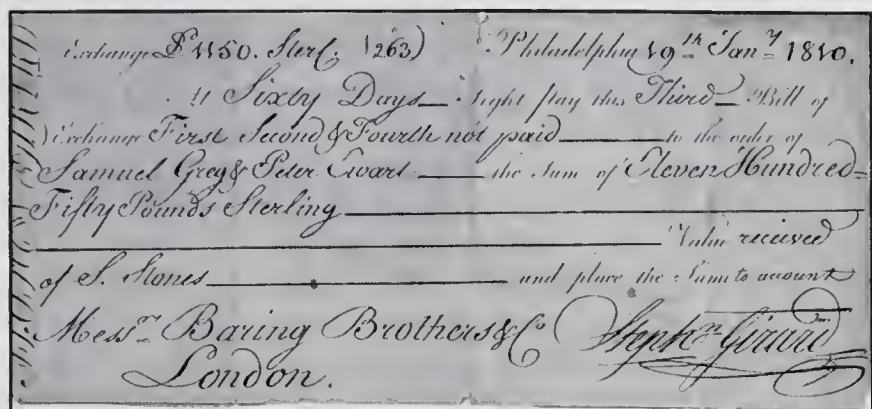 Exchange £ 1150. Sterl. (263) Philadelphia 19th Jany 1810.
At Sixty Days Sight pay this Third Bill of
Exchange First Second & Fourth not paid to the order of
Samuel Greg & Peter Ewart the Sum of Eleven Hundred
Fifty Pounds Sterling
Value received
of S. Stones and place the Same to account
Messrs Baring Brothers & Co Stephn Girard
London.